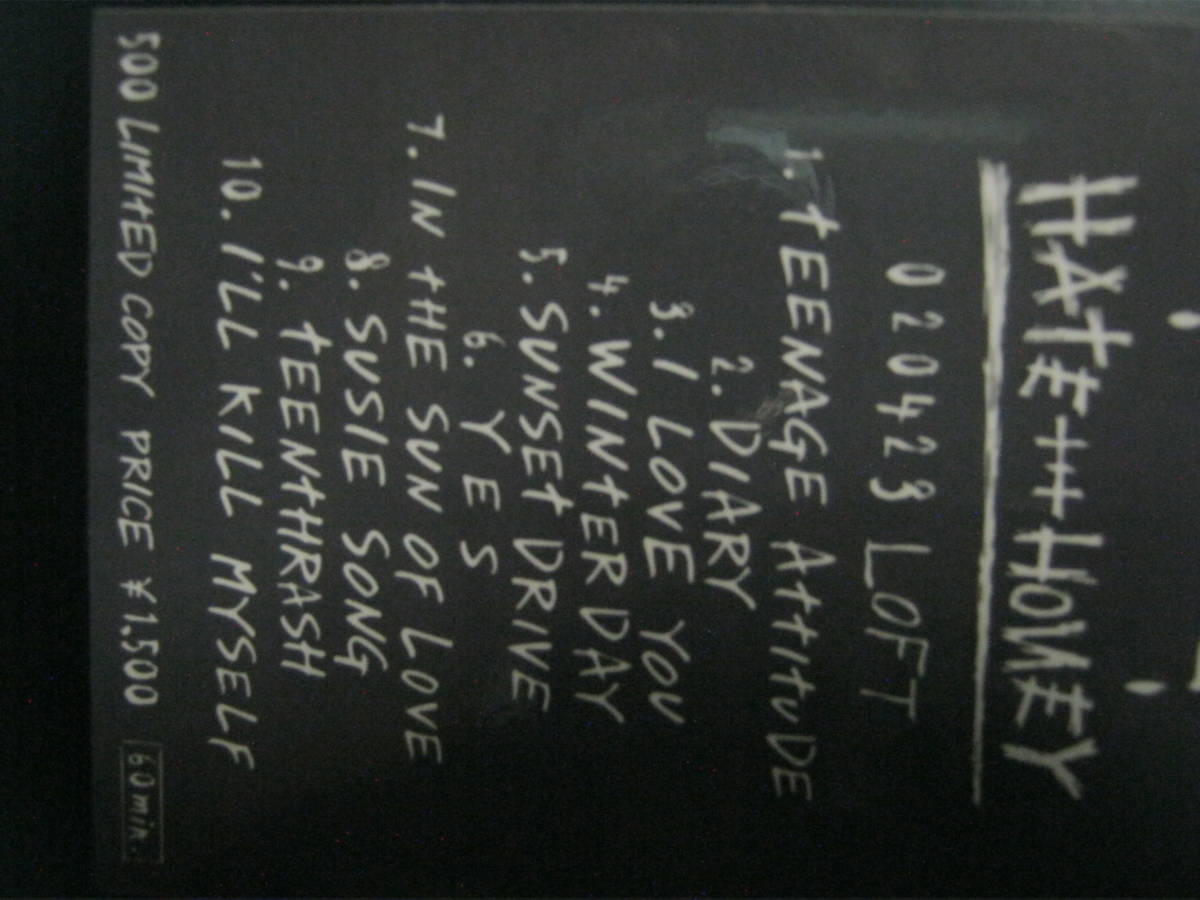 HATE HONEY
020423 LOFT
1. TEENAGE ATTITUDE
2. DIARY
3. I LOVE YOU
4. WINTER DAY
5. SUNSET DRIVE
6. YES
7. IN THE SUN OF LOVE
8. SUSIE SONG
9. TEENTHRASH
10. I'LL KILL MYSELF
500 LIMITED COPY PRICE ¥1.500 60 min.